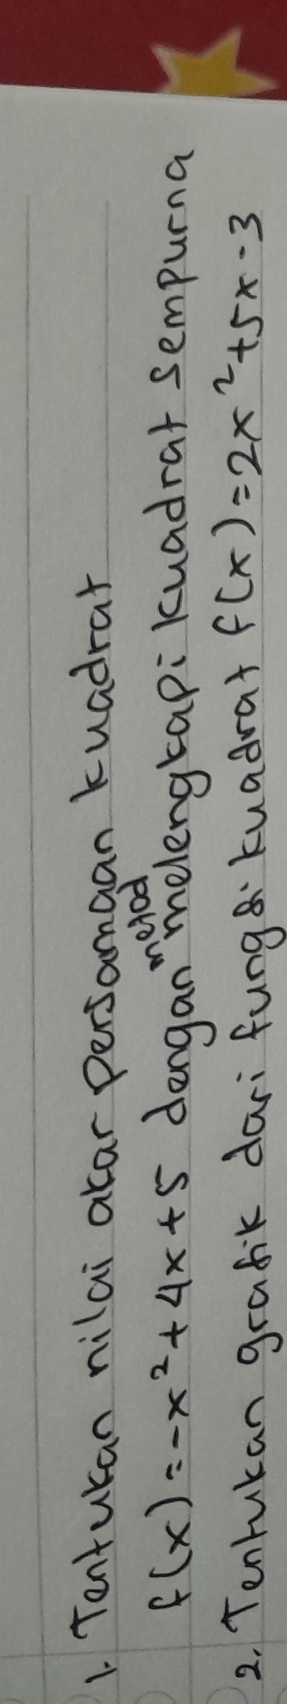 1. Tentukan nilai akar persamaan kuadrat
f(x) = -x² + 4x + 5 dengan metod melengkapi kuadrat sempurna
2. Tentukan grafik dari fungsi kuadrat f(x) = 2x² + 5x - 3